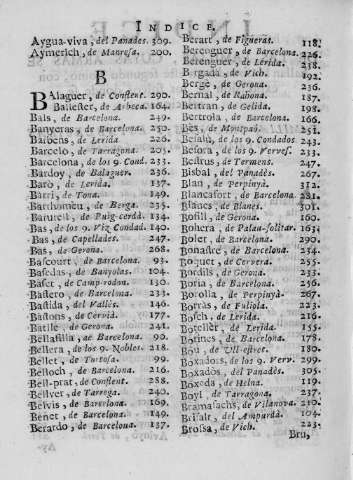 INDICE.
Aygua-viva, del Panadés. 309.
Aymerich, de Manresa. 200.
B
Balaguer, de Conflent. 290.
Ballester, de Arbeca. 164.
Bals, de Barcelona. 249.
Banyeras, de Barcelona. 250.
Barbens, de Lerida. 226.
Barceló, de Tarragona. 205.
Barcelona, de los 9. Cond. 233.
Bardoy, de Balaguer. 236.
Baró, de Lerida. 137.
Barri, de Tona. 149.
Barthomeu, de Berga. 235.
Barutell, de Puig-cerdá. 134.
Bas, de los 9. Viz. Condad. 140.
Bas, de Capellades. 247.
Bas, de Gerona. 268.
Bascourt, de Barcelona. 93.
Basedas, de Banyolas. 104.
Baset, de Camprodon. 130.
Bastero, de Barcelona. 231.
Bastida, del Vallès. 146.
Bastons, de Cervià. 177.
Batlle, de Gerona. 241.
Bellafilla, de Barcelona. 90.
Bellera, de los 9. Nobles. 218.
Bellet, de Tortosa. 99.
Belloch, de Barcelona. 216.
Bell-prat, de Conflent. 288.
Bellver, de Tarrega. 240.
Belvis, de Barcelona. 169.
Benet, de Barcelona. 149.
Berardo, de Barcelona. 137.
Berart, de Figueras. 118.
Berenguer, de Barcelona. 226.
Berenguer, de Lérida. 238.
Bergadá, de Vich. 192.
Berge, de Gerona. 236.
Bernal, de Rahona. 187.
Bertran, de Gelida. 198.
Bertrola, de Barcelona. 166.
Bes, de 251.
de los 9. Condados 243.
de los 9. Verves. 233.
de Termens. 247.
Bisbal, del Panadès. 267.
Blan, de Perpinyà. 312.
Blancafort, de Barcelona. 281.
Blanes, de Blanes. 301.
Bofill, de Gerona. 160.
Bohera, de Palau-solitar. 163.
Bolet, de Barcelona. 290.
de Barcelona. 242.
Boquet, de Cervera. 221.
Bordils, de Gerona. 256.
Boria, de Barcelona. 235.
Borolla, de Perpinyà. 267.
de Fuliola. 223.
Bosch, de Lerida. 216.
Boteller, de Lerida. 155.
Botines, de Barcelona. 178.
Bou, de Ull-estret. 180.
Boxadòs, de los 9. Verv. 299.
Boxadòs, del Panadès. 305.
Boxeda, de Helna. 119.
Boyl, de Tarragona. 237.
Bramafachs, de Vilanova. 210.
del Ampurdà. 104.
Brossa, de Vich. 223.
Bru,